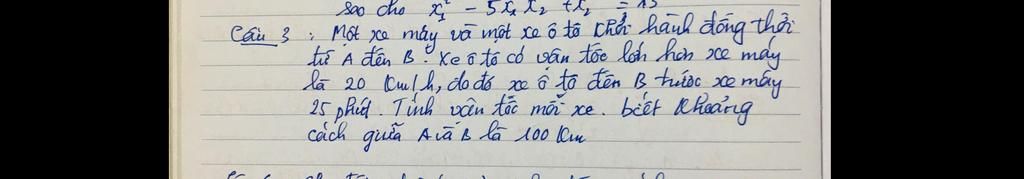 sao cho x₁² - 5x₁x₂ + x₂ =
Câu 3 : Một xe máy và một xe ô tô khởi hành đồng thời
từ A đến B. Xe ô tô có vân tốc lớn hơn xe máy
là 20 km/h, do đó xe ô tô đến B trước xe máy
25 phút. Tính vân tốc mỗi xe. biết khoảng
cách giữa A và B là 100 km